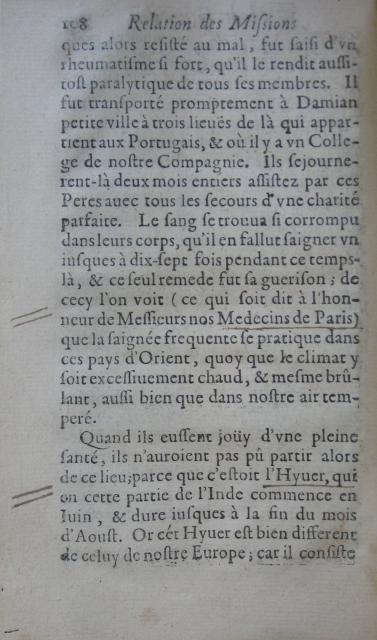 108 Relation des Miſsions
ques alors reſiſté au mal, fut ſaiſi d'vn
rheumatiſme ſi fort, qu'il le rendit auſſi-
toſt paralytique de tous ſes membres. Il
fut tranſporté promptement à Damian
petite ville à trois lieuës de là qui appar-
tient aux Portugais, & où il y a vn Colle-
ge de noſtre Compagnie. Ils ſejourne-
rent-là deux mois entiers aſſiſtez par ces
Peres auec tous les ſecours d'vne charité
parfaite. Le ſang ſe trouua ſi corrompu
dans leurs corps, qu'il en fallut ſaigner vn
iuſques à dix-ſept fois pendant ce temps-
là, & ce ſeul remede fut ſa gueriſon; de
cecy l'on voit (ce qui ſoit dit à l'hon-
neur de Meſſieurs nos Medecins de Paris)
que la ſaignée frequente ſe pratique dans
ces pays d'Orient, quoy que le climat y
ſoit exceſſiuement chaud, & meſme brû-
lant, auſſi bien que dans noſtre air tem-
peré.
Quand ils euſſent joüy d'vne pleine
ſanté, ils n'auroient pas pû partir alors
de ce lieu; parce que c'eſtoit l'Hyuer, qui
en cette partie de l'Inde commence en
Iuin, & dure iuſques à la fin du mois
d'Aouſt. Or cét Hyuer eſt bien different
de celuy de noſtre Europe; car il conſiſte